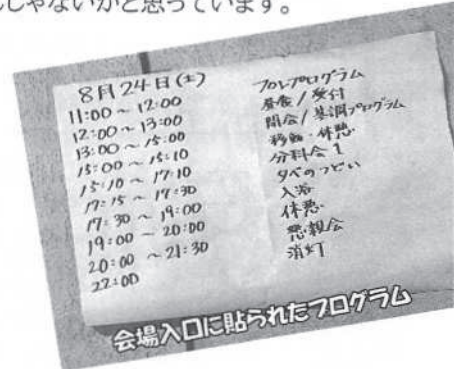 しじゃないかと思っています。
8月24日(土)
11:00 ~ 12:00 プレプログラム
12:00 ~ 13:00 昼食/受付
13:00 ~ 15:00 開会/基調プログラム
15:00 ~ 15:10 移動・休憩
15:10 ~ 17:10 分科会1
17:15 ~ 17:30 夕べのつどい
17:30 ~ 19:00 入浴
19:00 ~ 20:00 休憩
20:00 ~ 21:30 懇親会
22:00 消灯
会場入口に貼られたプログラム